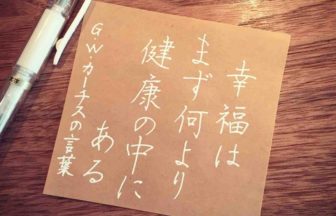 幸福は
まず何より
健康の中に
ある
G・W・カーチスの言葉